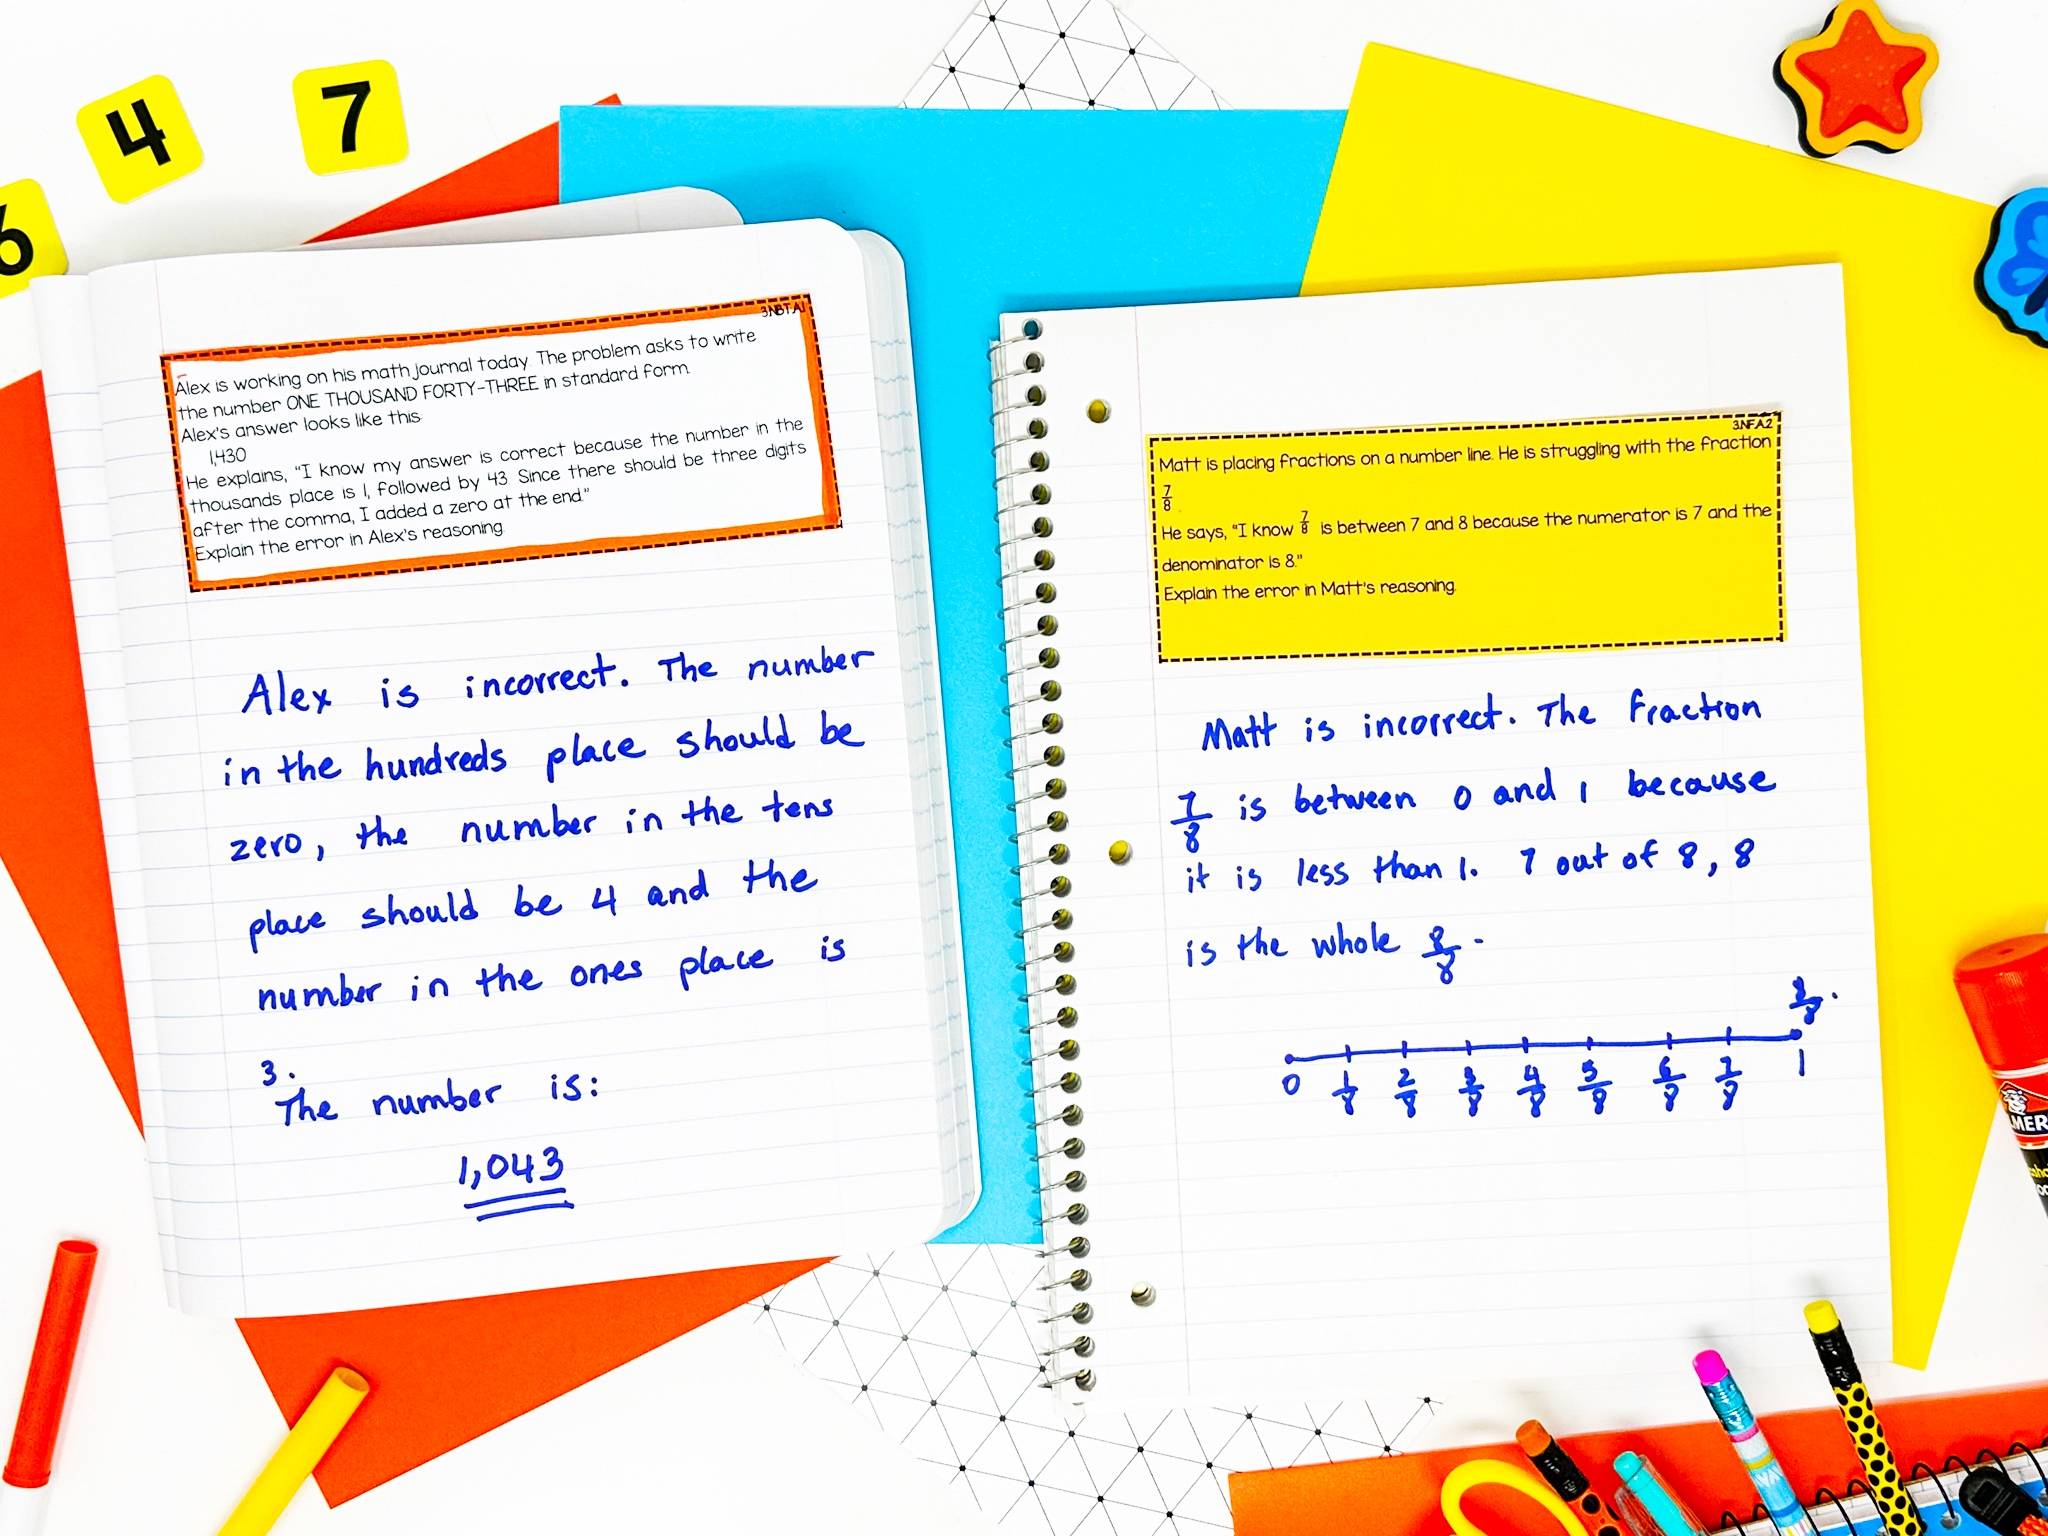 4
7
6
3.NBT.A.1
Alex is working on his math journal today. The problem asks to write
the number ONE THOUSAND FORTY-THREE in standard form.
Alex's answer looks like this:
1,430
He explains, "I know my answer is correct because the number in the
thousands place is 1, followed by 43. Since there should be three digits
after the comma, I added a zero at the end."
Explain the error in Alex's reasoning.
Alex is incorrect. The number
in the hundreds place should be
zero, the number in the tens
place should be 4 and the
number in the ones place is
3.
The number is:
1,043
3.NF.A.2
Matt is placing fractions on a number line. He is struggling with the fraction
7/8.
He says, "I know 7/8 is between 7 and 8 because the numerator is 7 and the
denominator is 8."
Explain the error in Matt's reasoning.
Matt is incorrect. The fraction
7/8 is between 0 and 1 because
it is less than 1. 7 out of 8, 8
is the whole 8/8.
8/8.
0 1/8 2/8 3/8 4/8 5/8 6/8 7/8 1